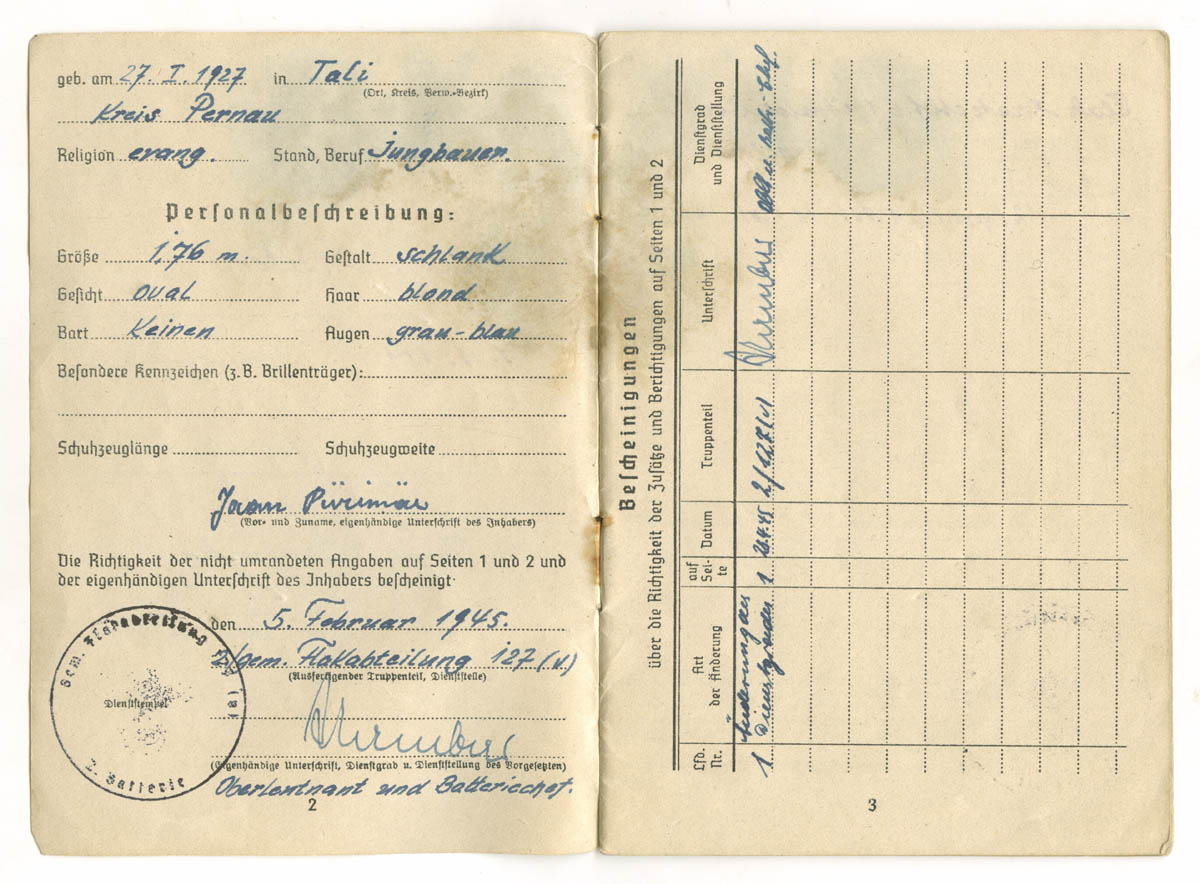 geb. am 27. I. 1927 in Tali
(Ort, Kreis, Verw.-Bezirk)
Kreis Pernau
Religion evang. Stand, Beruf Jungbauer.
Personalbeschreibung:
Größe 1,76 m. Gestalt schlank
Gesicht oval Haar blond
Bart Keinen Augen grau-blau
Besondere Kennzeichen (z. B. Brillenträger):
Schuhzeuglänge Schuhzeugweite
Jaan
(Vor- und Zuname, eigenhändige Unterschrift des Inhabers)
Die Richtigkeit der nicht umrandeten Angaben auf Seiten 1 und 2 und
der eigenhändigen Unterschrift des Inhabers bescheinigt
den 5. Februar 1945.
2/gem. Flakabteilung 127 (v)
(Ausfertigender Truppenteil, Dienststelle)
Gem. Flakabteilung
Dienststempel
2. Batterie
(Eigenhändige Unterschrift, Dienstgrad u. Dienststellung des Vorgesetzten)
Oberleutnant und Batteriechef.
2
Bescheinigungen
über die Richtigkeit der Zusätze und Berichtigungen auf Seiten 1 und 2
Lfd. Nr.
Art der Änderung
auf Sei- te
Datum
Truppenteil
Unterschrift
Dienstgrad und Dienststellung
1. Änderung des Dienstgrades 1 4.45 2/127(v) u. Battr.-Chef.
3